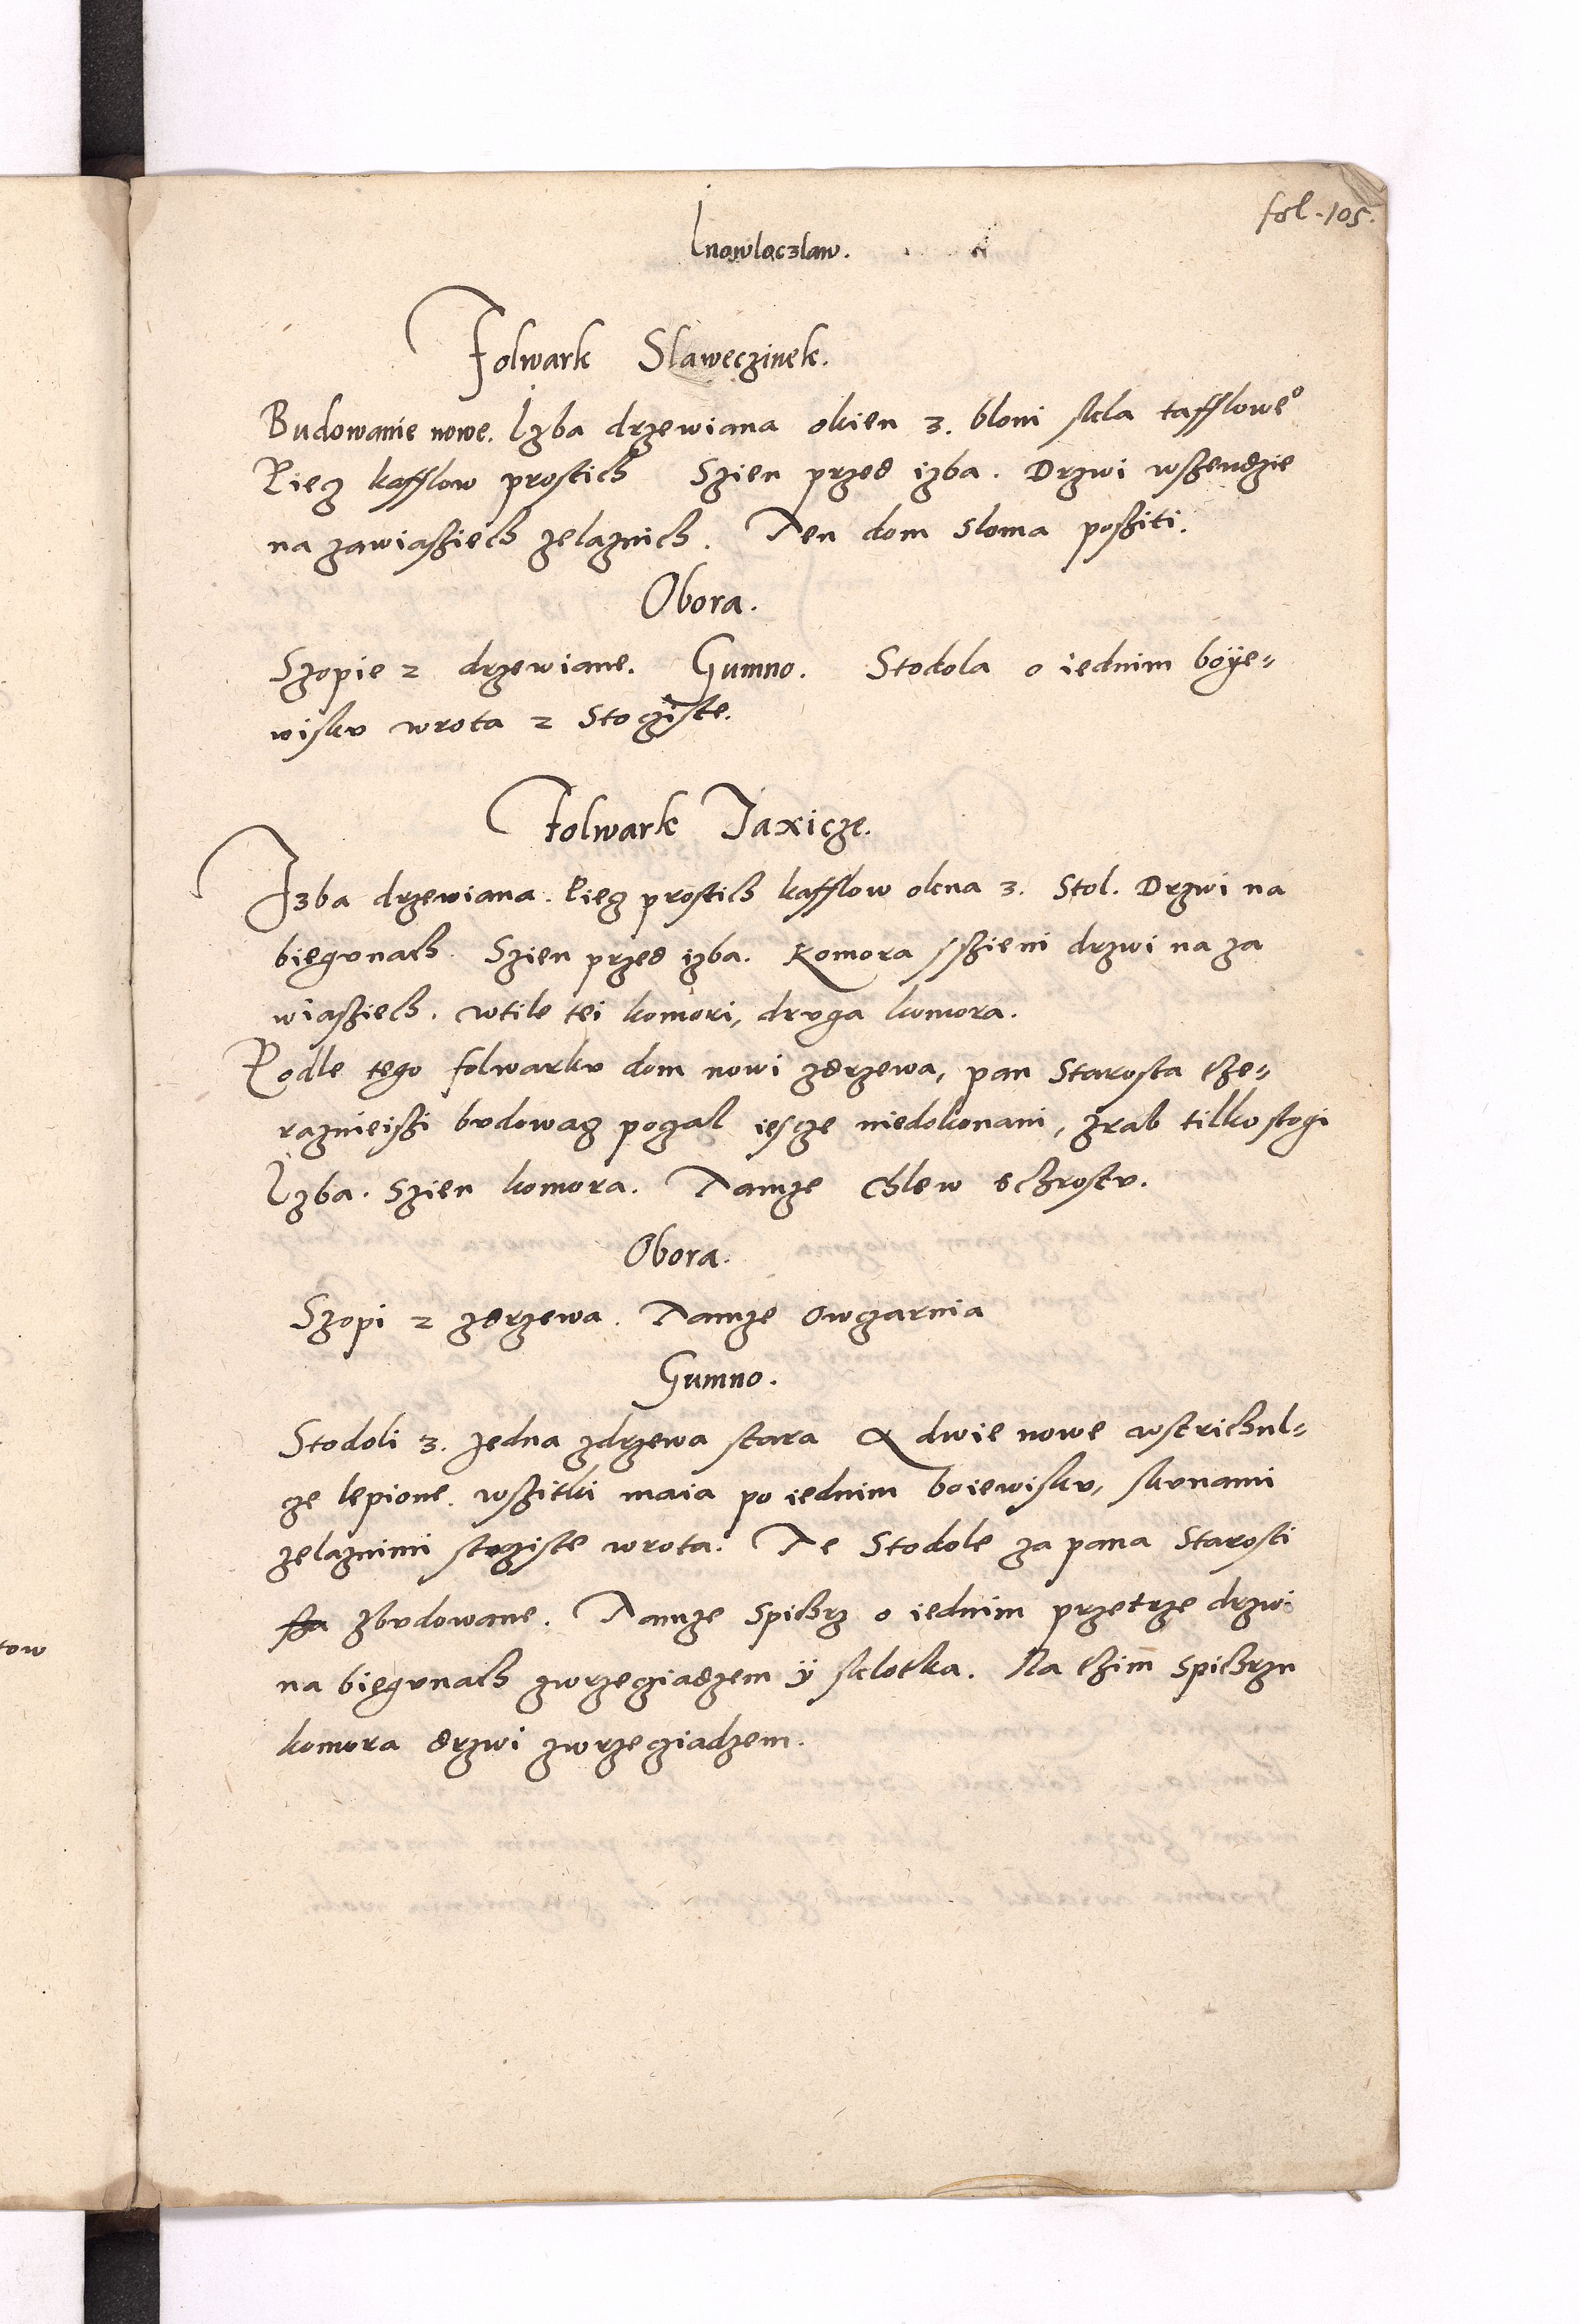 fol. 105.
Inowloczlaw.
Folwark Slaweczinek.
Budowanie nowe. Izba drzewiana okien 3. bloni skla tafflowe°
Piecz kafflow prostich Szien przed izba. Drzwi wszendzie
na zawiasziech zelaznich. Ten dom sloma posziti.
Obora.
Szopie 2 drzewiane. Gumno. Stodola o iednim boÿe-
wisku wrota 2 Stogiste.
Folwark Jaxicze.
Izba drzewiana. Piecz prostich kafflow okna 3. Stol. Drzwi na
biegunach. Szien przed izba. Komora sszieni drzwi na za
wiasziech. wtile tei komori, druga komora.
Podle tego folwarku dom nowi zdrzewa, pan Starosta the-
raznieiszi budowacz poczal iescze niedokonani, zrab tilko stogi
Izba. Szien komora. Tamze Chlew schrostu.
Obora.
Szopi 2 zdrzewa. Tamze Owczarnia
Gumno.
Stodoli 3. jedna zdrzewa stara & dwie nowe wstrichul-
cze lepione. wszitki maia po iednim boiewisku, skunami
zelaznimi stogiste wrota. Te Stodole za pana Starosti
zbudowane. Tamze Spichrz o iednim przetrze drzwi
na biegunach zwrzecziadzem ÿ sklotka. Na thim Spichrzu
komora drzwi zwrzecziadzem.
tow